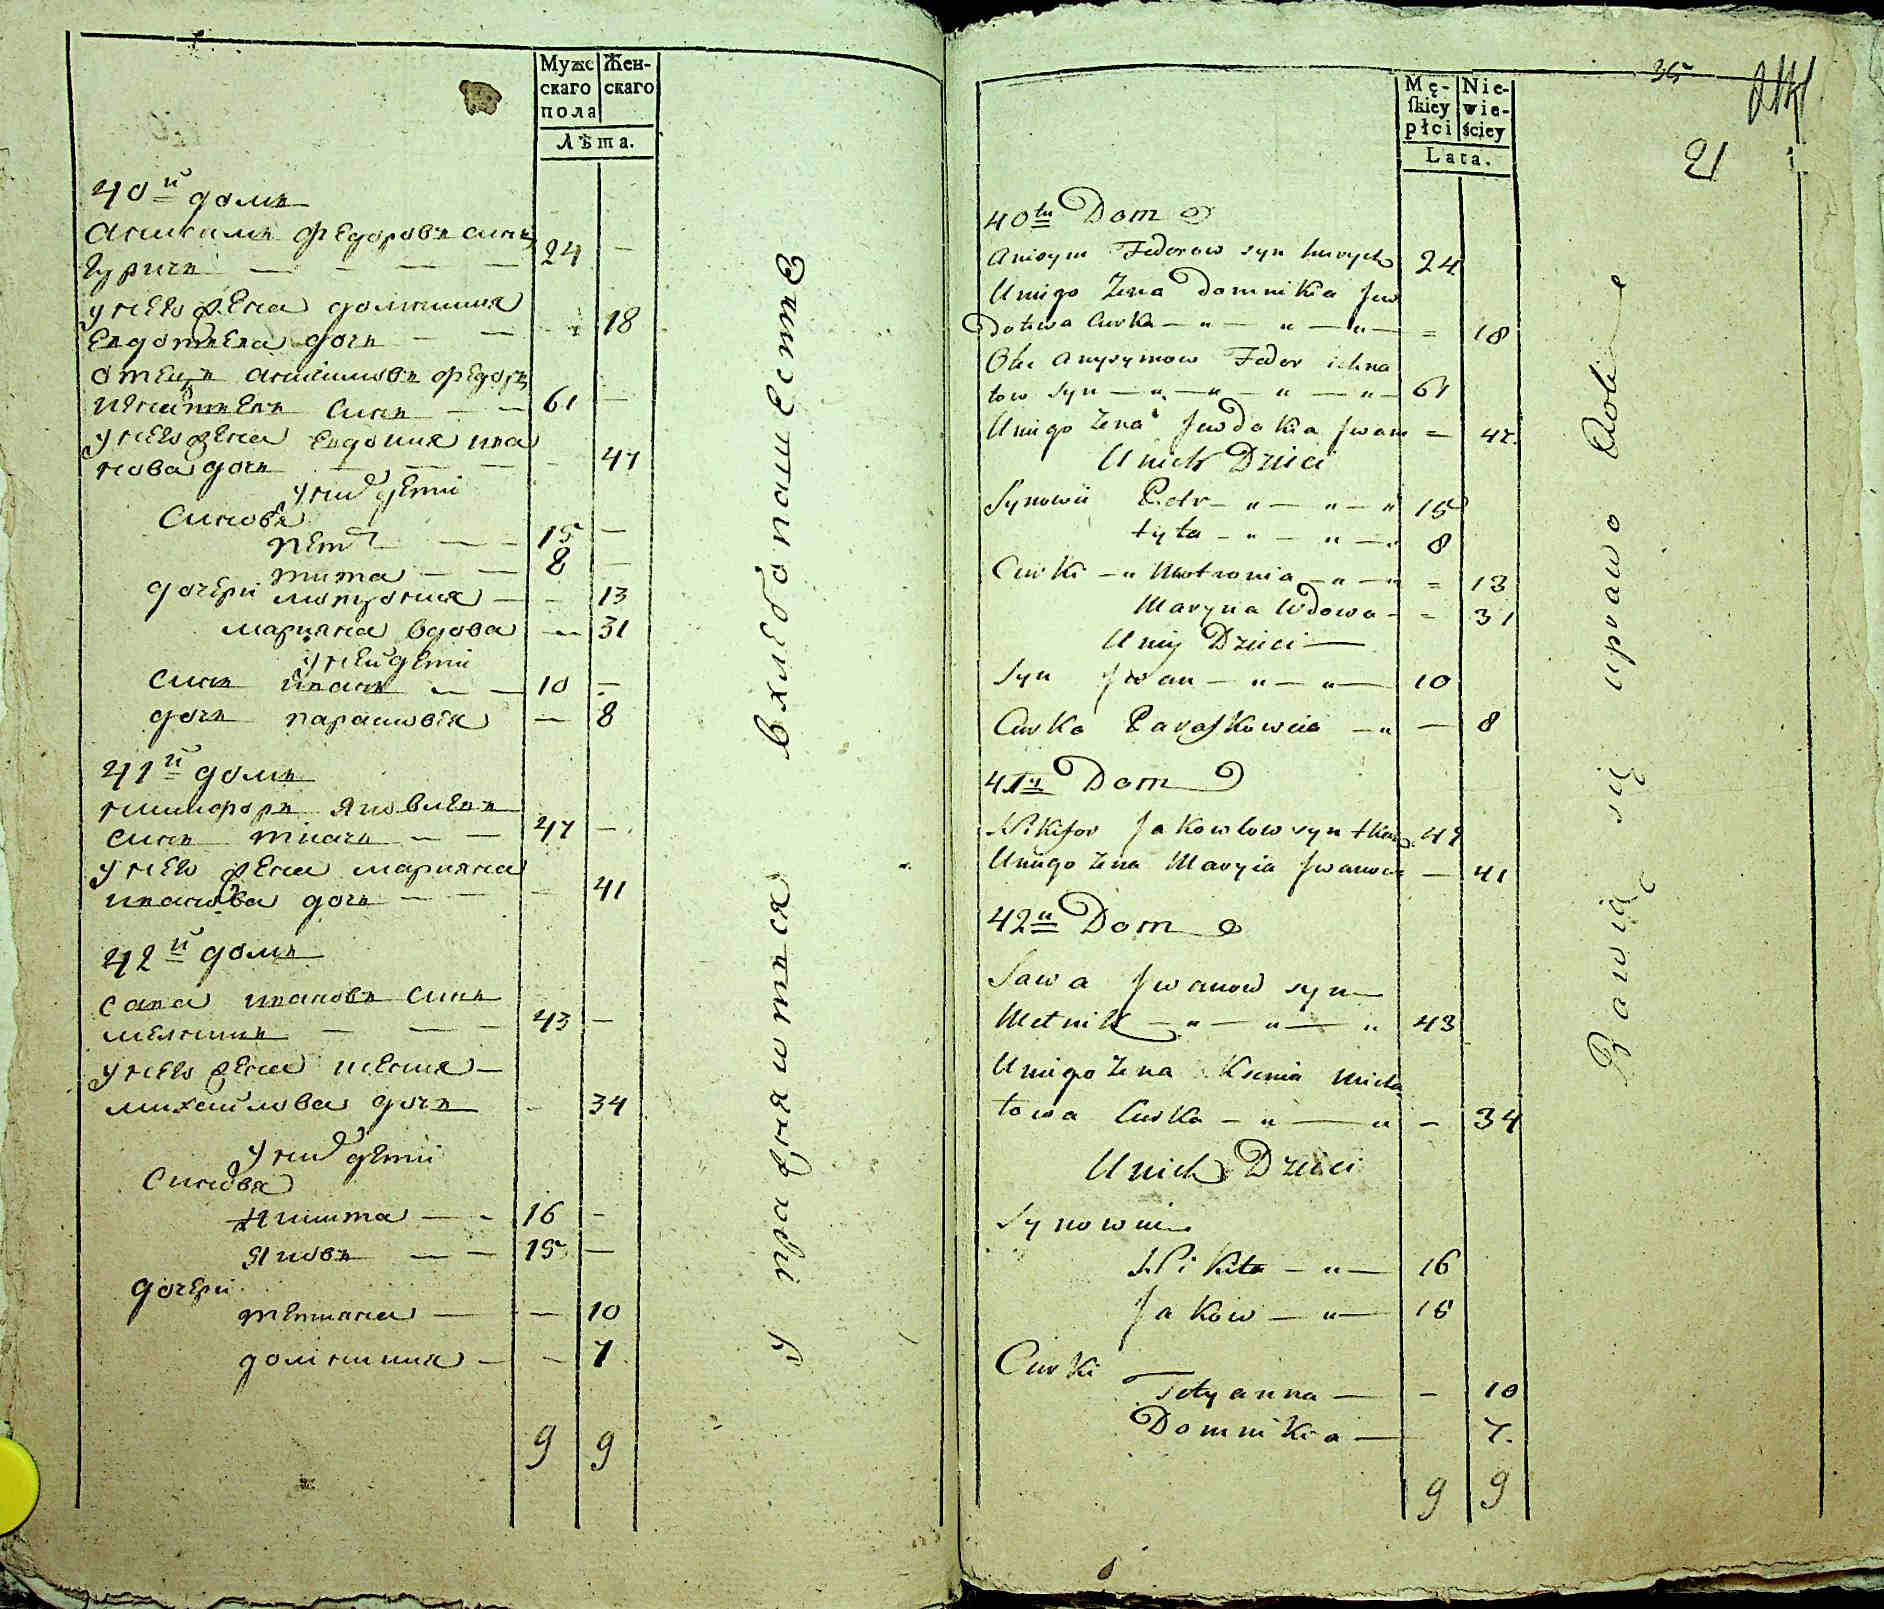 Муже
скаго
пола
Жен-
скаго
Лѣта.
40й домъ
Анисимъ Федоровъ синъ
24 —
У него жена Домникия
Евдотѣева дочъ — — 18
отецъ Анисимовъ Федоръ
Игнатѣевъ синъ — — 61 —
У него жена Евдокия Ива
нова дочъ — — — 47
У них дети
Синовя
Петр — — 15 —
Тита — — 8 —
дочери Мотрония — — 13
Марияна вдова — 31
У ней дети
синъ Иванъ — — 10 —
дочъ Парасковия — 8
41й домъ
Никифоръ Яковлевъ
синъ Ткачъ — — 47 —
У него жена Марияна
Иванова дочъ — — — 41
42й домъ
Сава Ивановъ синъ
Мелникъ — — — 43 —
У него жена Ксения —
Михайлова дочъ — 34
У них дети
Синовя
Никита — - 16 —
Яковъ — — 15 —
дочери
Тетияна — — 10
Домникия — — 7
9 9
Упражняются в хлебопашестве
35
21
Mę-
ſkiey
płci
Nie-
wie-
ściey
Lata.
40ty Dom
Anisym Fedorow syn 24
Uniego Żena Domnikia Jew
dotewa Curka — „ — „ — „ — = 18
Otec Anysymow Fedor ichna
tow syn — „ — „ — „ — „ — 61
Uniego Żena Jewdokia Jwan = 47.
Unich Dzieci
Synowii Petr — „ — „ — „ 15
tyta — „ — „ — 8
Curki — „ Motronia — „ — „ = 13
Maryna Wdowa - = 31
Uniy Dzieci —
Syn Jwan — „ — „ — 10
Curka Paraſkowia — „ — 8
41ty Dom
Nikifor Jakowlow syn tkacz 47
Uniego Żena Maryia Jwanow — 41
42i Dom
Sawa Jwanow syn
Melnik — „ — „ — „ 43
Uniego Żena Ksenia Micha
łowa Curka — „ — „ — 34
Unich Dzieci
Synowii
Nikita — „ — 16
Jakow — „ — 15
Curki
Tetyanna — — 10
Domnikia — 7.
9 9
Bawią się uprawo Roli